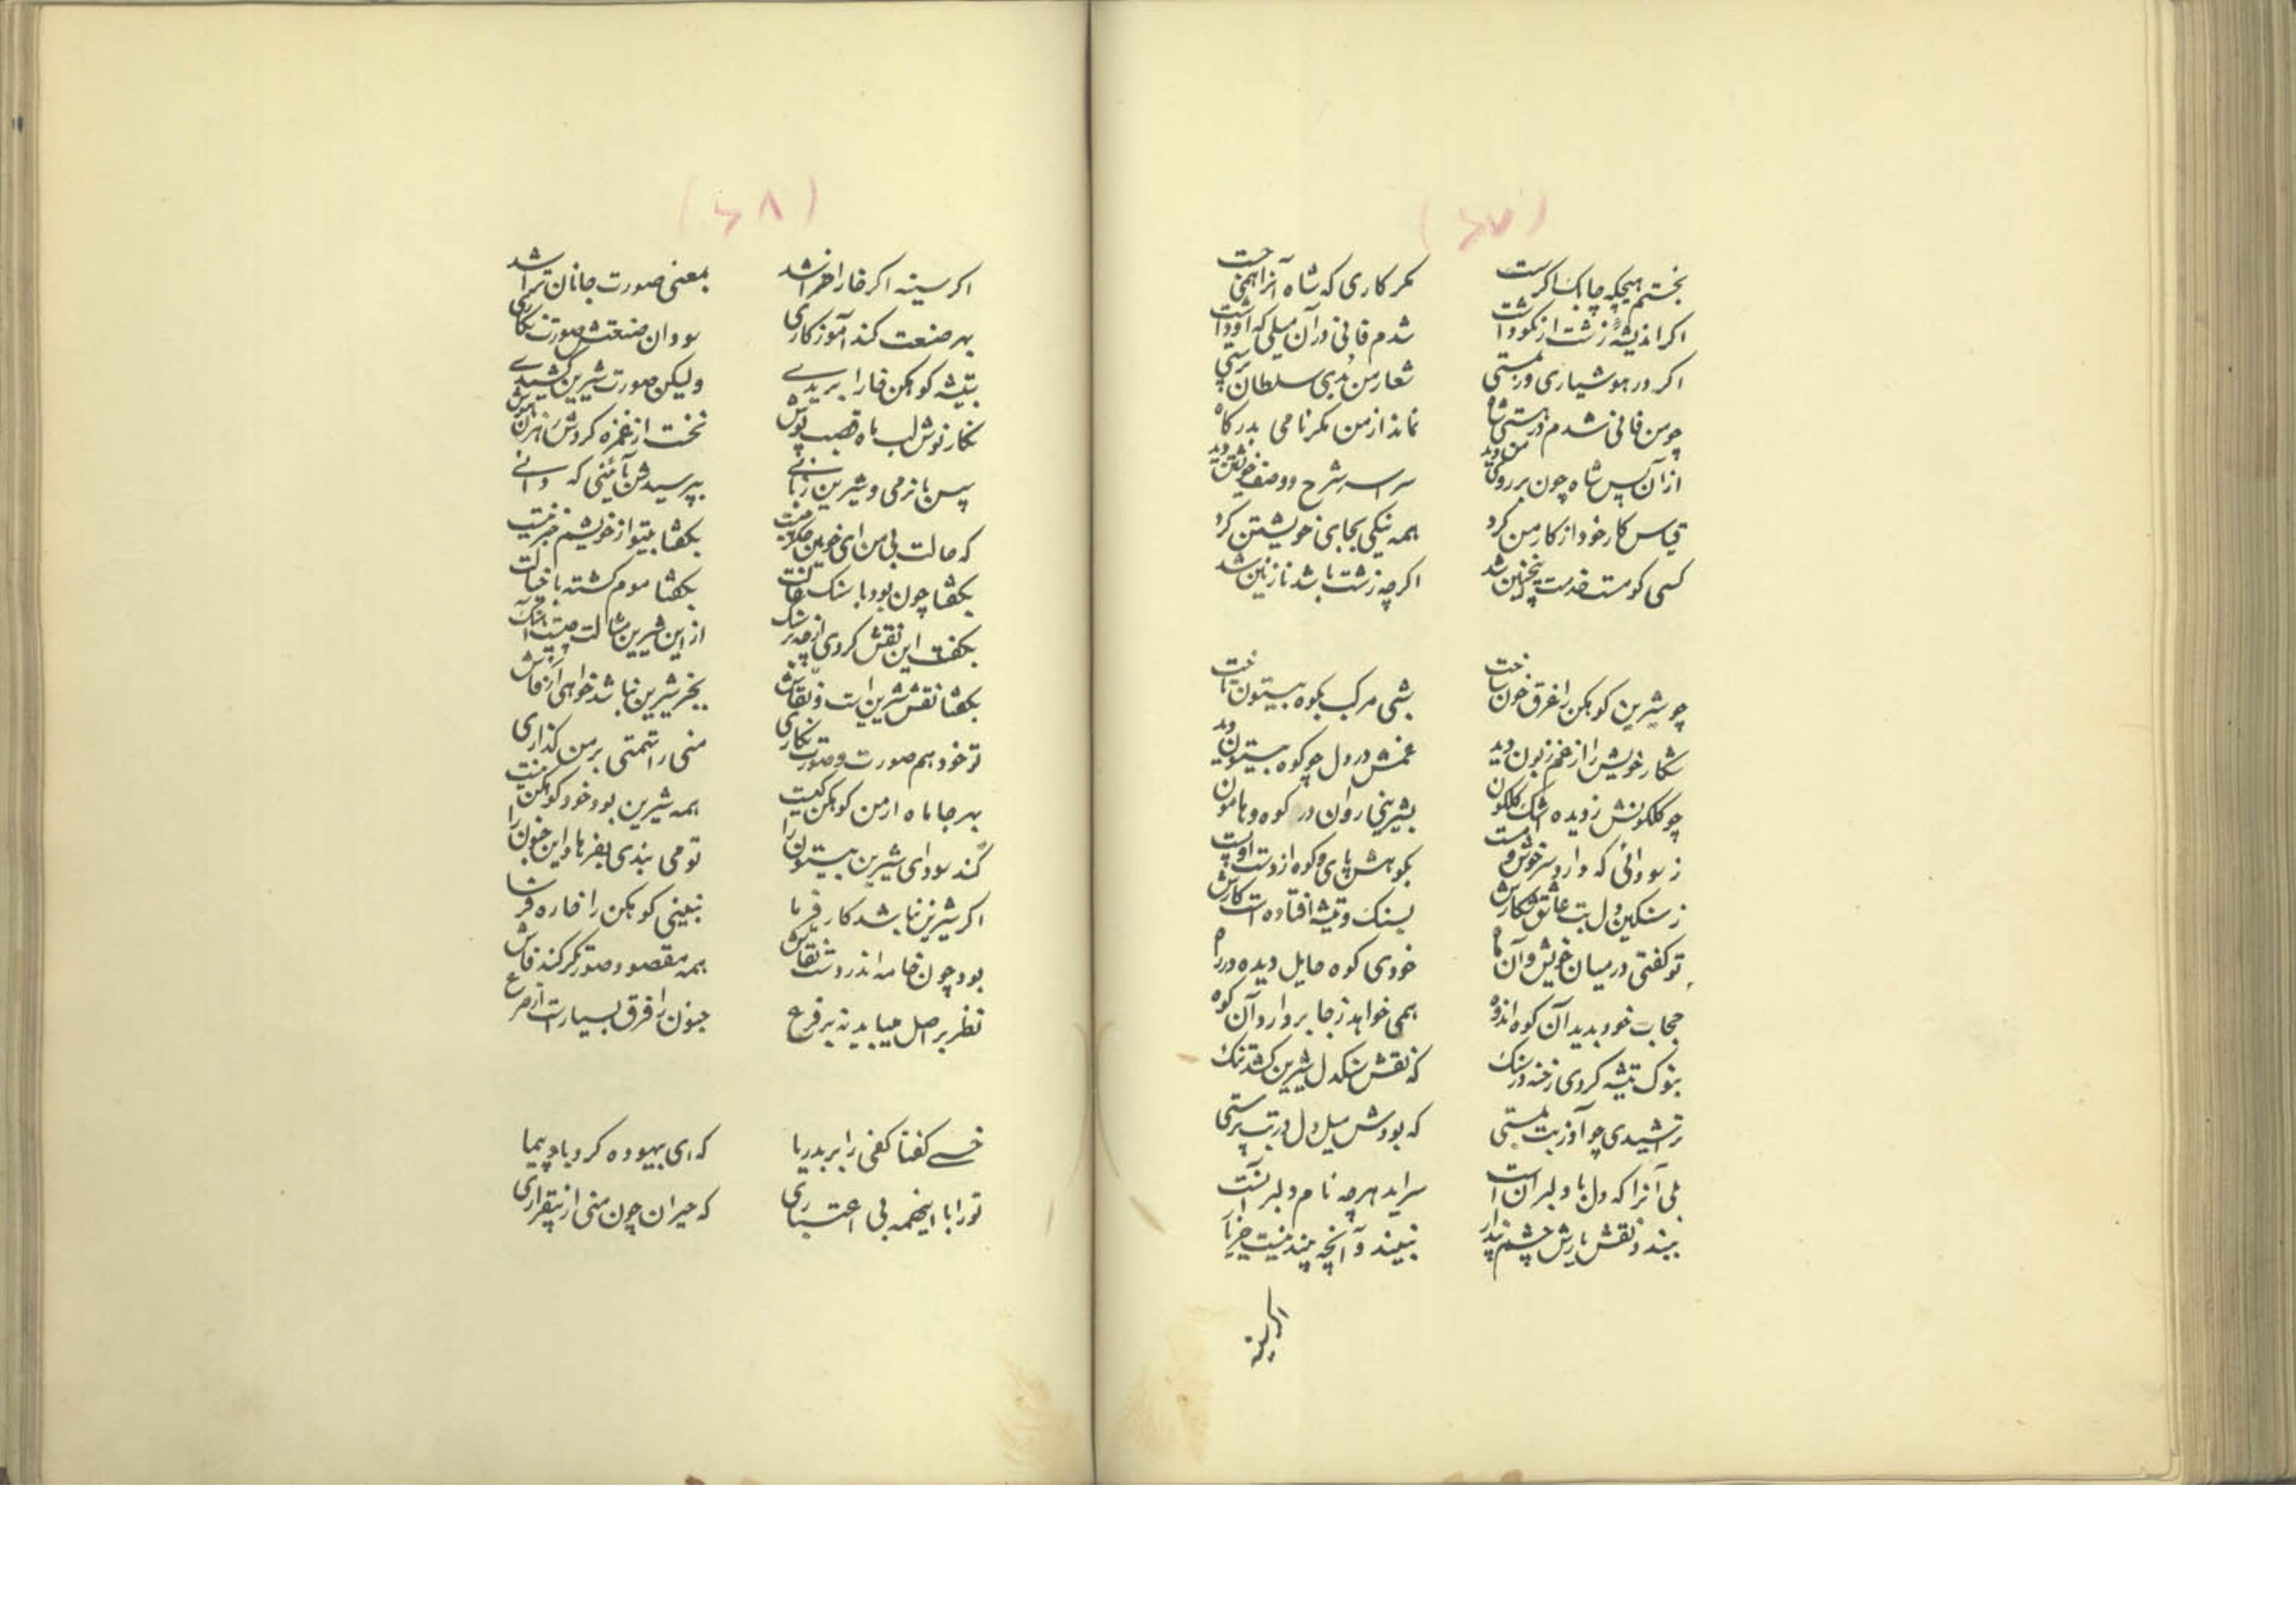 (۶۷)
بجستم هیچکه چابک اکرست
مکر کاری که شاه آنرا همی جست
اکر اندیشه زشت ار نکو داشت
شدم فانی در آن میلی که او داشت
اکر در هوشیاری ور بمستی
شعار من بدی سلطان پرستی
چو من فانی شدم در هستی شاه
نماند از من مکر نامی بدرکاه
از آن پس شاه چون بر روی من دید
سراسر شرح و وصف خویشتن دید
قیاس کار خود از کار من کرد
همه نیکی بجای خویشتن کرد
کسی کو مست خدمت اینچنین شد
اکرچه زشت باشد نازنین شد
چو شیرین کوهکن را غرق خون ساخت
بشی مرکب بکوه بیستون تاخت
شکار خویش را از غم زبون دید
غمش در دل چو کوه بیستون دید
چو کلکونش ز دیده اشک کلکون
بشیرینی روان در کوه و هامون
ز سودائی که دارد سرخوش و مست
بکوهش پای و کوه از دست او پست
ز سنکین دل بت عاشق شکارش
بسنک و تیشه افتاده است کارش
تو کفتی در میان خویش و آن ماه
خودی کوه حایل دیده در راه
حجاب خود بدید آن کوه اندوه
همی خواهد ز جا بردارد آن کوه
بنوک تیشه کردی رخنه در سنک
که نقش سنکدل شیرین کشد تنک
تراشیدی چو آذر بت بمستی
که بودش میل دل در بت پرستی
بلی آنرا که دل با دلبران است
سراید هرچه نام دلبر آنست
نبیند نقش یارش چشم پندار
نبیند و آنچه بیند نیست جز یار
اکر سینه
(۶۸)
اکر سینه اکر خارا خراشد
بمعنی صورت جانان تراشد
بهر صنعت کند آموزکاری
بود آن صنعتش صورت نکاری
بتیشه کوهکن خارا بریدے
ولیکن صورت شیرین کشیدے
نکار نوش لب ماه قصب پوش
نخست از غمزه کردش رهزن هوش
پس با نرمی و شیرین زبانے
بپرسیدش بآئینی که دانے
که حالت بی من ای خونین جکر چیست
بکفتا بیتو از خویشم خبر نیست
بکفتا چون بود با سنک حالت
بکفتا موم کشته با خیالت
بکفت این نقش کردی از چه بر سنک
از این شیرین مثالت چیست آهنک
بکفتا نقش شیرین است و نقاش
بجز شیرین نباشد خواهی ار فاش
تو خود هم صورت و صورت نکاری
منی را تهمتی بر من کذاری
بهر جا ماه ارمن کوهکن کیست
همه شیرین بود خود کوهکن نیست
کند سودای شیرین بیستون را
تو می بندی بفرهاد این جنون را
اکر شیرین نباشد کار فرما
نبینی کوهکن را خاره فرسا
بود چون خامه اندر دست نقاش
همه مقصود صورتکر کند فاش
نظر بر اصل میباید نه بر فرع
جنون را فرق بسیار است از صرع
خسے کفتا کفی را بر بدریا
که ای بیهوده کرد باد پیما
تو را با اینهمه بی اعتباری
که حیران چون منی از بیقراری